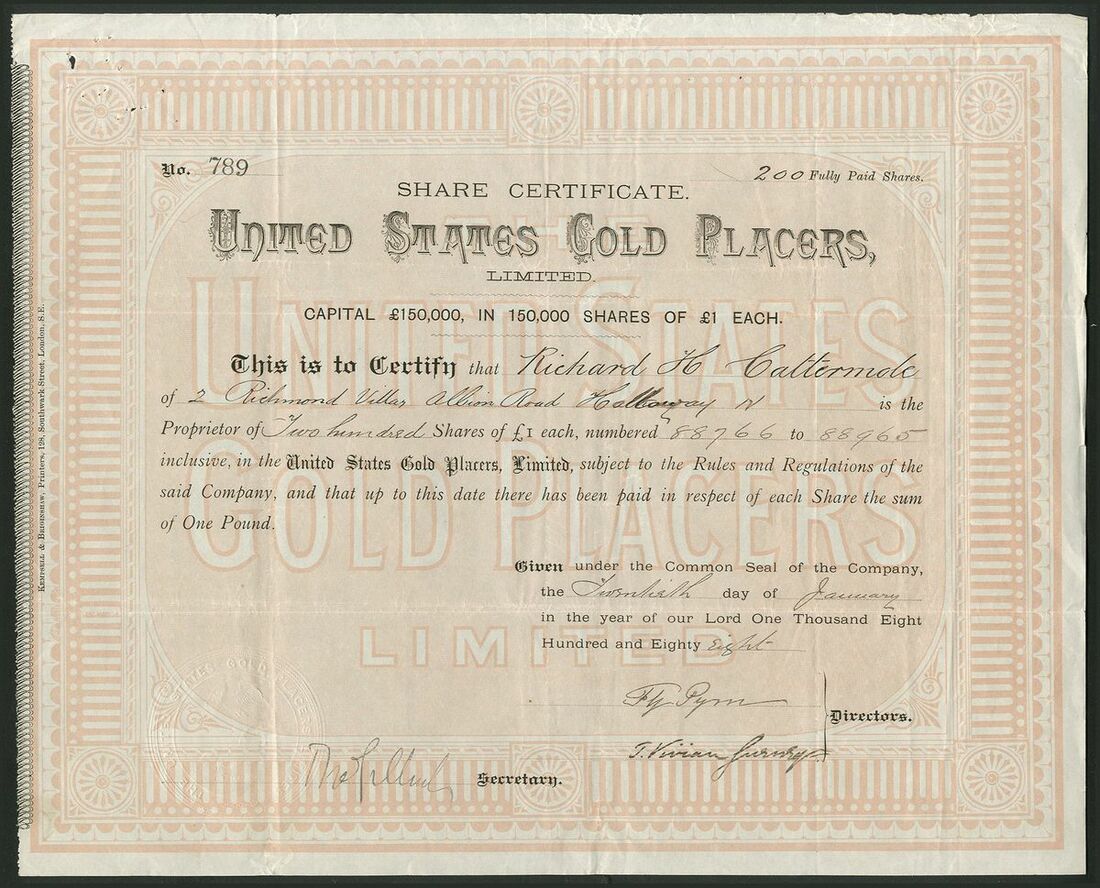 No. 789
200 Fully Paid Shares.
SHARE CERTIFICATE.
UNITED STATES GOLD PLACERS,
LIMITED.
CAPITAL £150,000, IN 150,000 SHARES OF £1 EACH.
This is to Certify that Richard H Cattermole
of 2 Richmond Villas Albion Road Holloway N is the
Proprietor of Two hundred Shares of £1 each, numbered 88766 to 88965
inclusive, in the United States Gold Placers, Limited, subject to the Rules and Regulations of the
said Company, and that up to this date there has been paid in respect of each Share the sum
of One Pound.
Given under the Common Seal of the Company,
the Twentieth day of January
in the year of our Lord One Thousand Eight
Hundred and Eighty Eight
Pym
Directors.
T. Vivian
Secretary.
THE
UNITED STATES
GOLD PLACERS
LIMITED
STATES GOLD PLACERS
KEMPSELL & BRIGINSHAW, Printers, 128, Southwark Street, London, S.E.